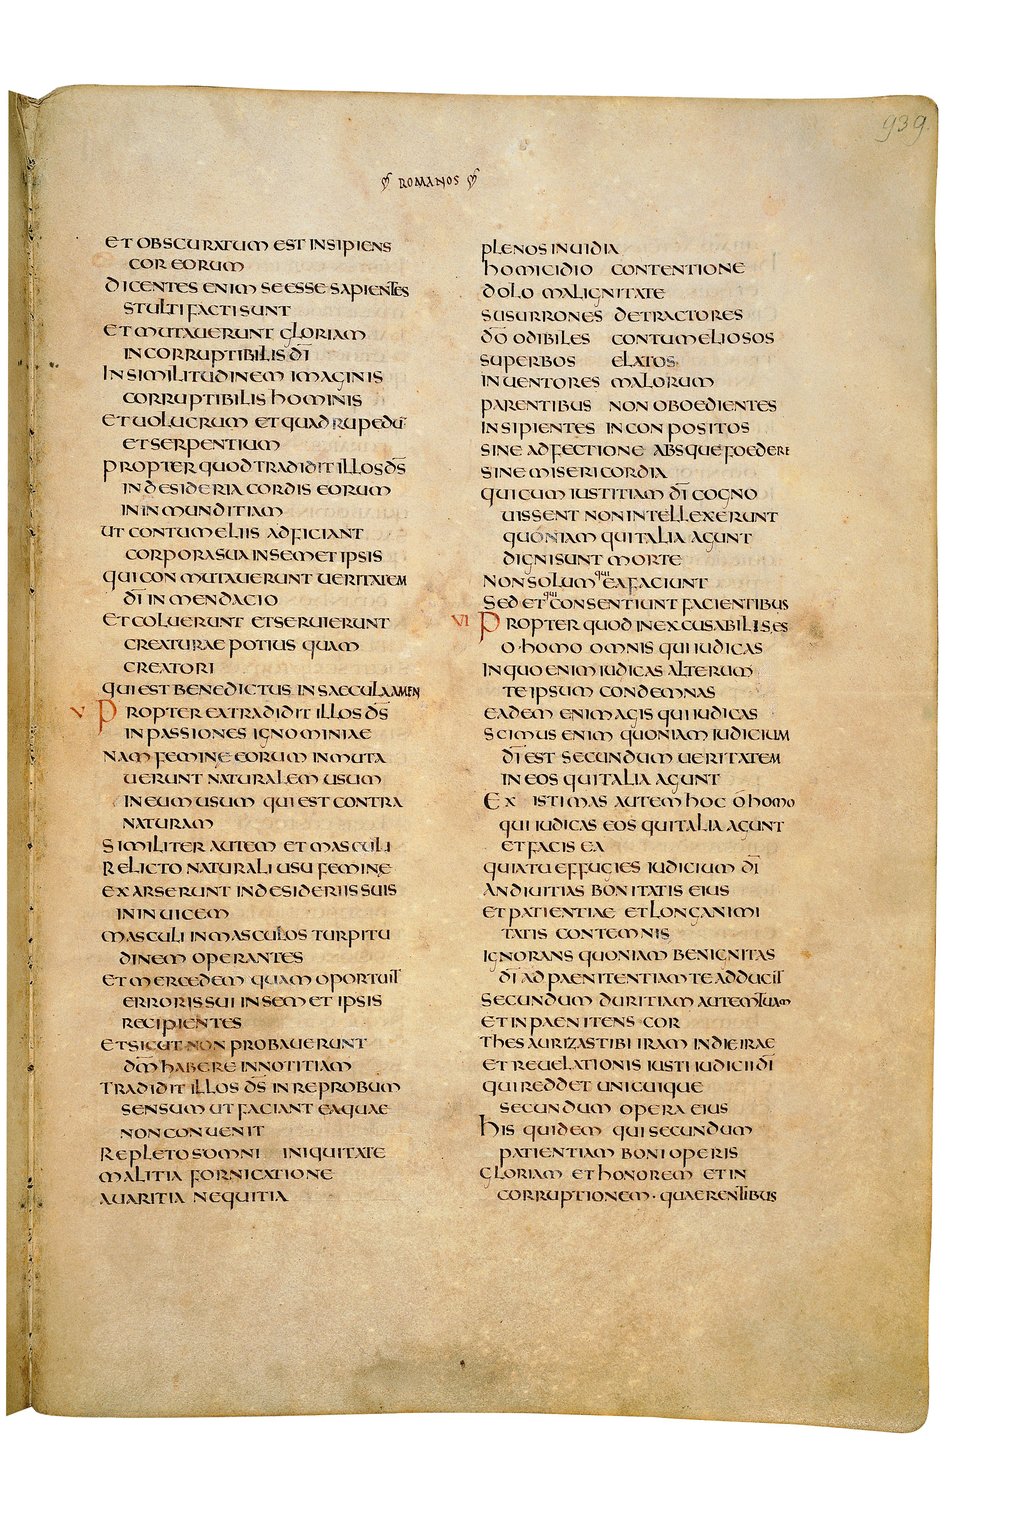 939
ROMANOS
ET OBSCURATUM EST INSIPIENS
COR EORUM
DICENTES ENIM SE ESSE SAPIENTES
STULTI FACTI SUNT
ET MUTAUERUNT GLORIAM
INCORRUPTIBILIS D̄I
IN SIMILITUDINEM IMAGINIS
CORRUPTIBILIS HOMINIS
ET UOLUCRUM ET QUADRUPEDŪ
ET SERPENTIUM
PROPTER QUOD TRADIDIT ILLOS D̄S
IN DESIDERIA CORDIS EORUM
IN INMUNDITIAM
UT CONTUMELIIS ADFICIANT
CORPORA SUA IN SEMET IPSIS
QUI CONMUTAUERUNT UERITATEM
D̄I IN MENDACIO
ET COLUERUNT ET SERUIERUNT
CREATURAE POTIUS QUAM
CREATORI
QUI EST BENEDICTUS IN SAECULA AMEN
V PROPTEREA TRADIDIT ILLOS D̄S
IN PASSIONES IGNOMINIAE
NAM FEMINE EORUM INMUTA
UERUNT NATURALEM USUM
IN EUM USUM QUI EST CONTRA
NATURAM
SIMILITER AUTEM ET MASCULI
RELICTO NATURALI USU FEMINE
EXARSERUNT IN DESIDERIIS SUIS
IN INUICEM
MASCULI IN MASCULOS TURPITU
DINEM OPERANTES
ET MERCEDEM QUAM OPORTUIT
ERRORIS SUI IN SEMET IPSIS
RECIPIENTES
ET SICUT NON PROBAUERUNT
D̄M HABERE IN NOTITIAM
TRADIDIT ILLOS D̄S IN REPROBUM
SENSUM UT FACIANT EA QUAE
NON CONUENIT
REPLETOS OMNI INIQUITATE
MALITIA FORNICATIONE
AUARITIA NEQUITIA
PLENOS INUIDIA
HOMICIDIO CONTENTIONE
DOLO MALIGNITATE
SUSURRONES DETRACTORES
D̄O ODIBILES CONTUMELIOSOS
SUPERBOS ELATOS
INUENTORES MALORUM
PARENTIBUS NON OBOEDIENTES
INSIPIENTES INCONPOSITOS
SINE ADFECTIONE ABSQUE FOEDERE
SINE MISERICORDIA
QUI CUM IUSTITIAM D̄I COGNO
UISSENT NON INTELLEXERUNT
QUONIAM QUI TALIA AGUNT
DIGNI SUNT MORTE
NON SOLUM qui EA FACIUNT
SED ET qui CONSENTIUNT FACIENTIBUS
VI PROPTER QUOD INEXCUSABILIS ES
O HOMO OMNIS QUI IUDICAS
IN QUO ENIM IUDICAS ALTERUM
TE IPSUM CONDEMNAS
EADEM ENIM AGIS QUI IUDICAS
SCIMUS ENIM QUONIAM IUDICIUM
D̄I EST SECUNDUM UERITATEM
IN EOS QUI TALIA AGUNT
EXISTIMAS AUTEM HOC O HOMO
QUI IUDICAS EOS QUI TALIA AGUNT
ET FACIS EA
QUIA TU EFFUGIES IUDICIUM D̄I
AN DIUITIAS BONITATIS EIUS
ET PATIENTIAE ET LONGANIMI
TATIS CONTEMNIS
IGNORANS QUONIAM BENIGNITAS
D̄I AD PAENITENTIAM TE ADDUCIT
SECUNDUM DURITIAM AUTEM TUAM
ET INPAENITENS COR
THESAURIZAS TIBI IRAM IN DIE IRAE
ET REUELATIONIS IUSTI IUDICII D̄I
QUI REDDET UNICUIQUE
SECUNDUM OPERA EIUS
HIS QUIDEM QUI SECUNDUM
PATIENTIAM BONI OPERIS
GLORIAM ET HONOREM ET IN
CORRUPTIONEM · QUAERENTIBUS